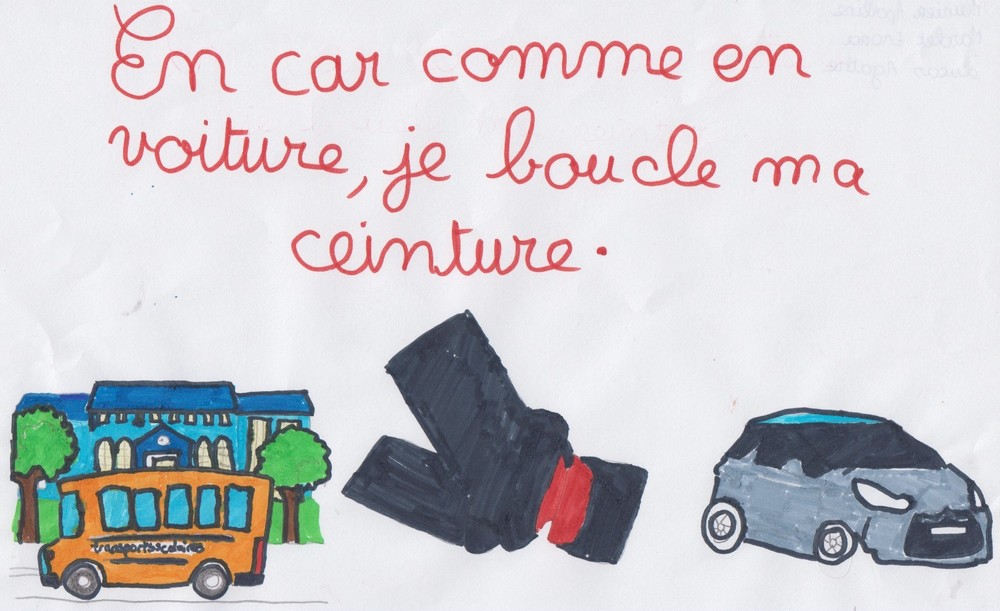 En car comme en
voiture, je boucle ma
ceinture.
transports scolaires